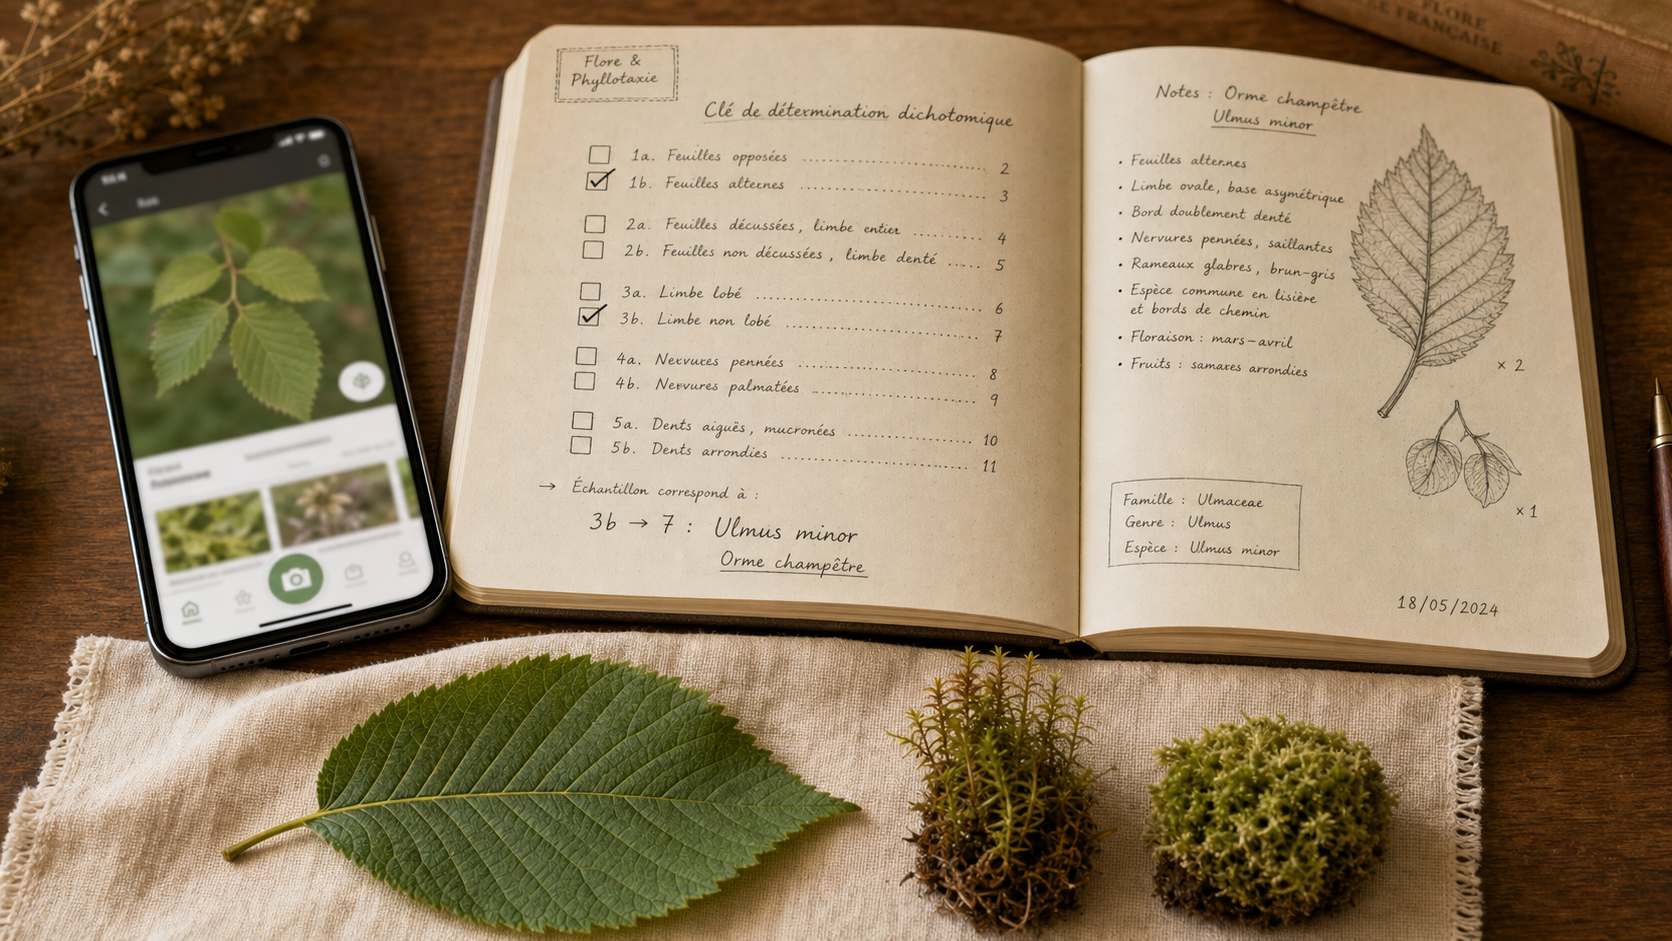 Flore &
Phyllotaxie
Clé de détermination dichotomique
1a. Feuilles opposées 2
1b. Feuilles alternes 3
2a. Feuilles décussées, limbe entier 4
2b. Feuilles non décussées, limbe denté 5
3a. Limbe lobé 6
3b. Limbe non lobé 7
4a. Nervures pennées 8
4b. Nervures palmatées 9
5a. Dents aiguës, mucronées 10
5b. Dents arrondies 11
→ Échantillon correspond à :
3b → 7 : Ulmus minor
Orme champêtre
Notes : Orme champêtre
Ulmus minor
• Feuilles alternes
• Limbe ovale, base asymétrique
• Bord doublement denté
• Nervures pennées, saillantes
• Rameaux glabres, brun-gris
• Espèce commune en lisière
et bords de chemin
• Floraison : mars-avril
• Fruits : samares arrondies
× 2
× 1
Famille : Ulmaceae
Genre : Ulmus
Espèce : Ulmus minor
18/05/2024
FLORE
FRANÇAISE